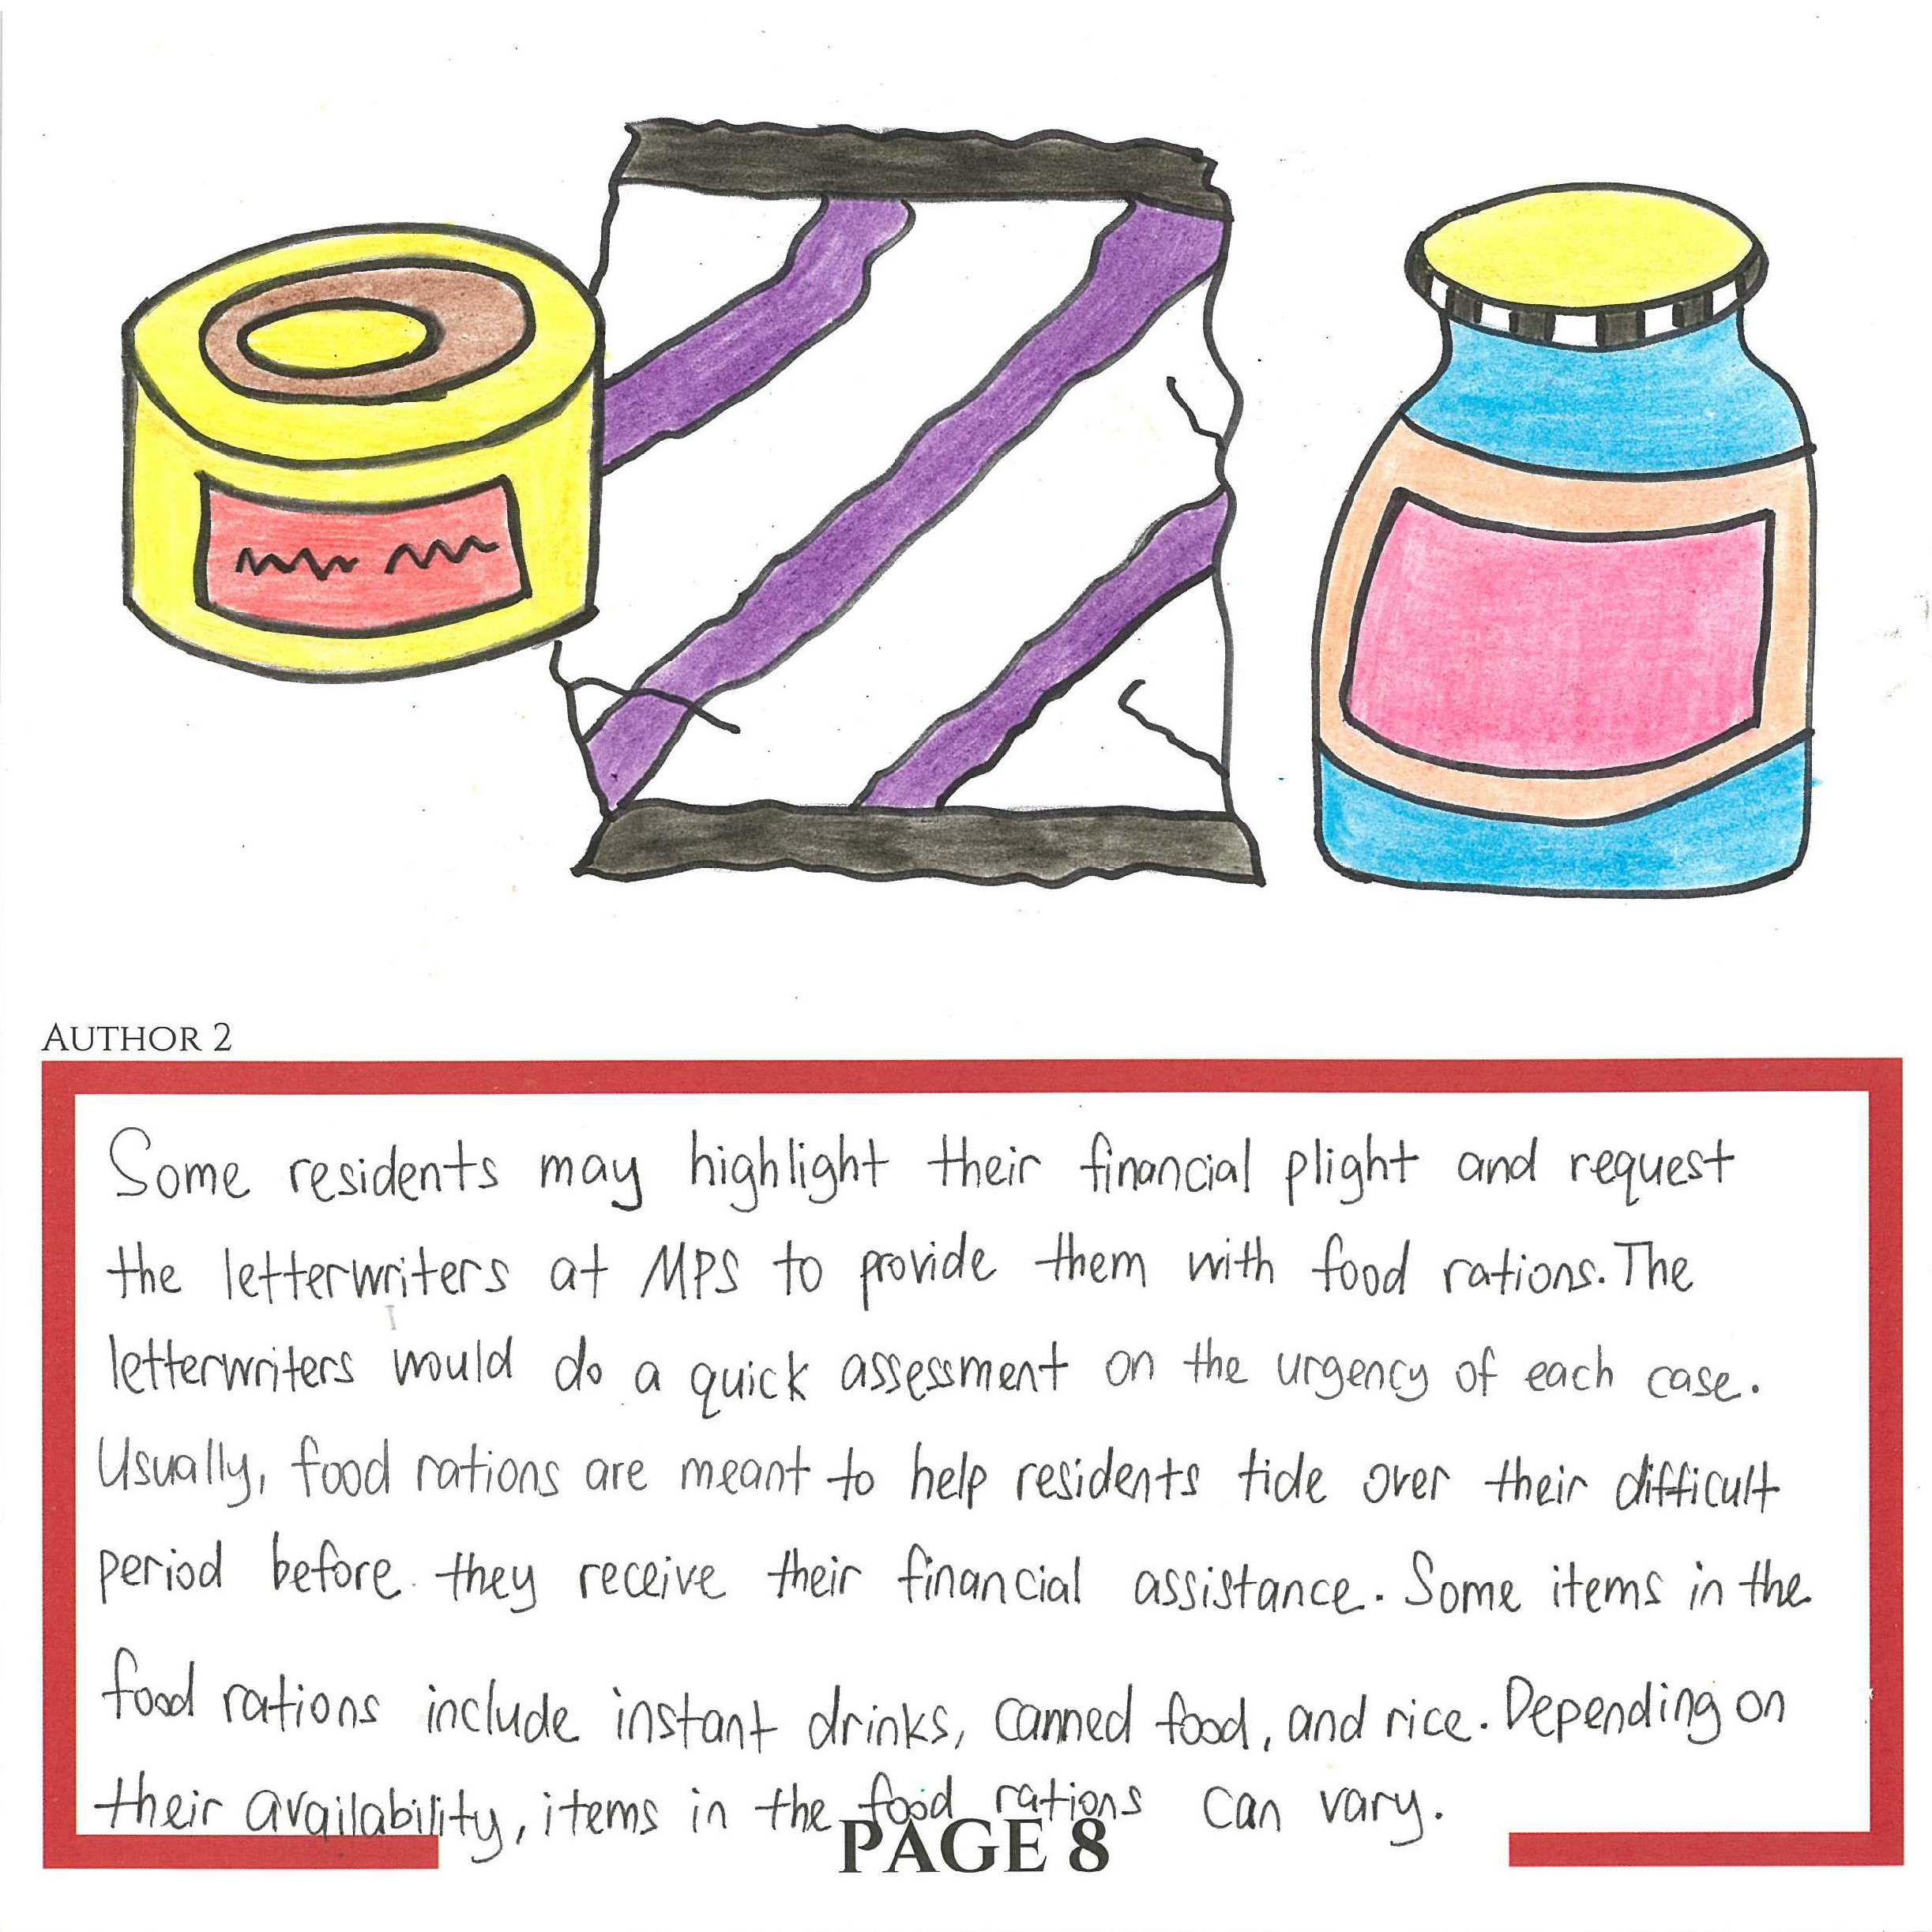 AUTHOR 2
Some residents may highlight their financial plight and request
the letterwriters at MPS to provide them with food rations. The
letterwriters would do a quick assessment on the urgency of each case.
Usually, food rations are meant to help residents tide over their difficult
period before they receive their financial assistance. Some items in the
food rations include instant drinks, canned food, and rice. Depending on
their availability, items in the food rations can vary.
PAGE 8